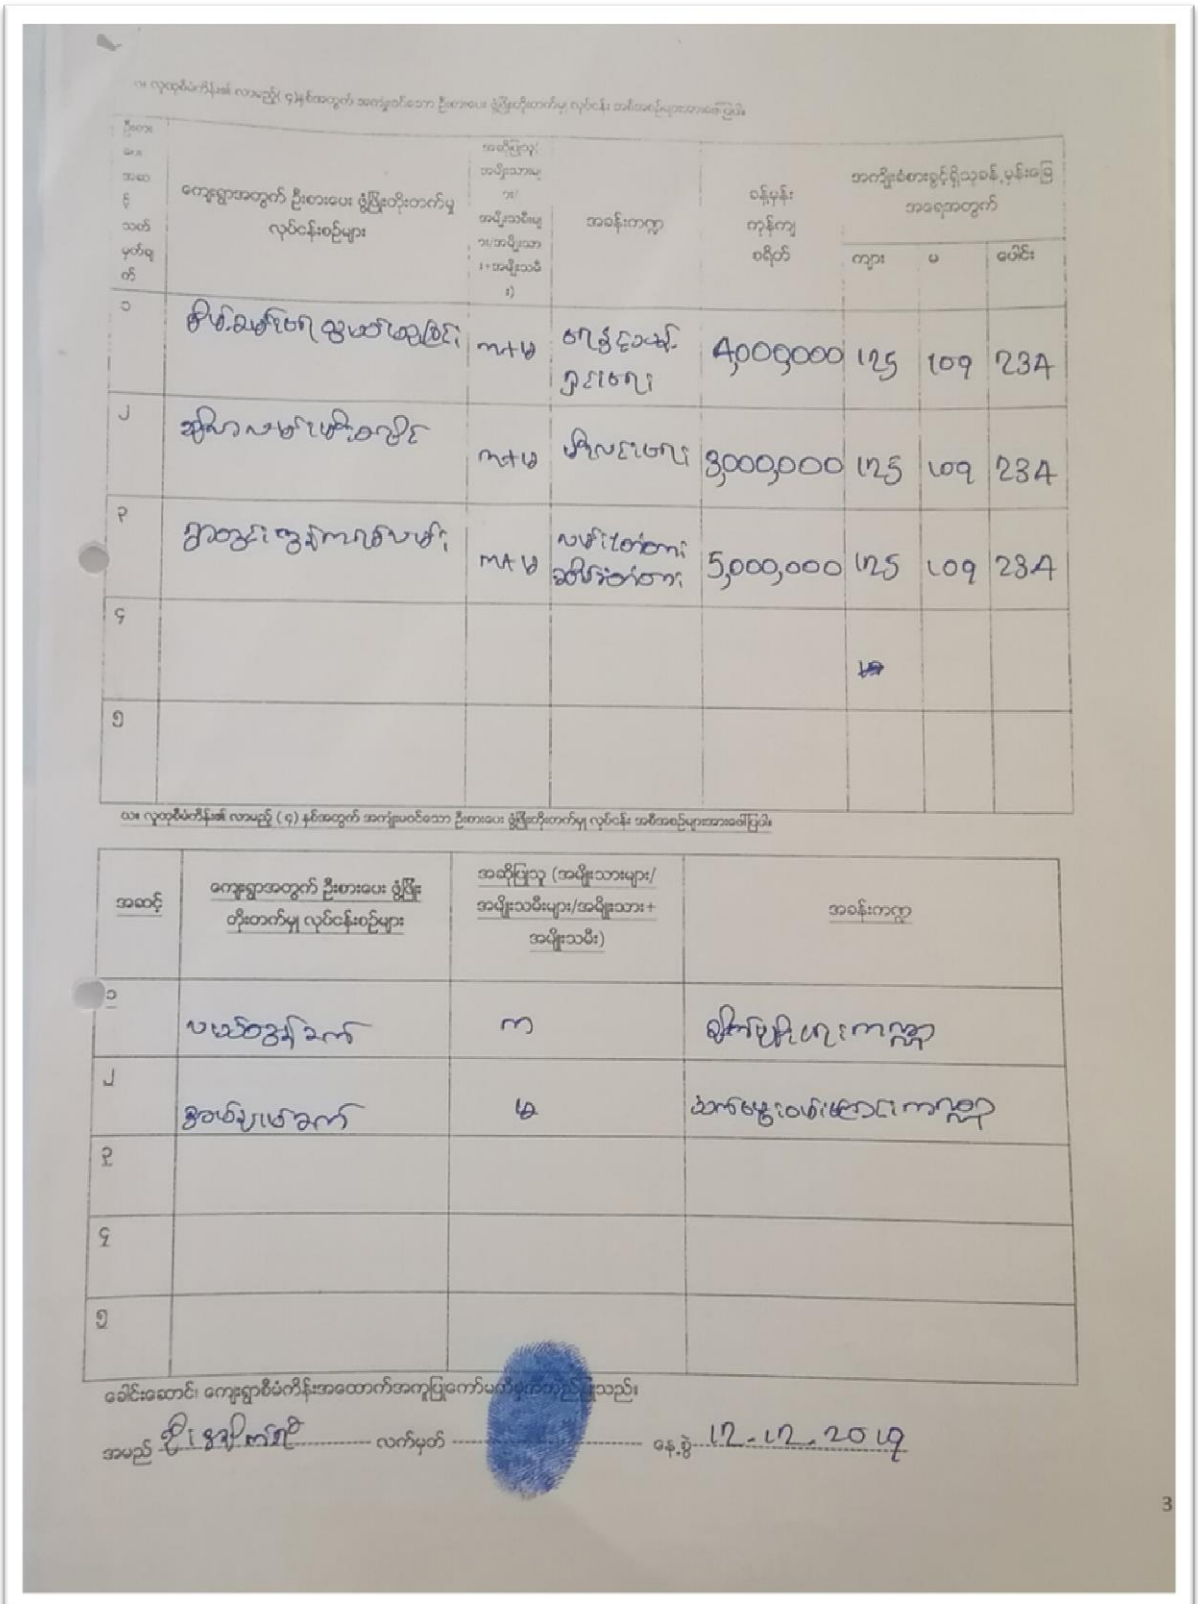 လူထုစီမံကိန်း၏ လာမည့်(၄)နှစ်အတွက် အကျုံးဝင်သော ဦးစားပေး ဖွံ့ဖြိုးတိုးတက်မှု လုပ်ငန်း အစီအစဉ်များအားဖော်ပြပါ။
ဦးစား
ပေး
အဆ
င့်
သတ်
မှတ်ချ
က်
ကျေးရွာအတွက် ဦးစားပေး ဖွံ့ဖြိုးတိုးတက်မှု
လုပ်ငန်းစဉ်များ
အဆိုပြုသူ(
အမျိုးသားမျ
ား/
အမျိုးသမီးမျ
ား/အမျိုးသာ
း+အမျိုးသမီ
း)
အခန်းကဏ္ဍ
ခန့်မှန်း
ကုန်ကျ
စရိတ်
အကျိုးခံစားခွင့်ရှိသူခန့်မှန်းခြေ
အရေအတွက်
ကျား မ ပေါင်း
၁ က+မ 4,000,000 125 109 234
၂ က+မ မီးလင်းရေး 3,000,000 125 109 234
၃ ရွာတွင်းကွန်ကရစ်လမ်း က+မ လမ်း/တံတား 5,000,000 125 109 234
ဆိပ်ခံတံတား
၄
၅
ဃ။ လူထုစီမံကိန်း၏ လာမည့် (၄) နှစ်အတွက် အကျုံးမဝင်သော ဦးစားပေး ဖွံ့ဖြိုးတိုးတက်မှု လုပ်ငန်း အစီအစဉ်များအားဖော်ပြပါ။
အဆင့်
ကျေးရွာအတွက် ဦးစားပေး ဖွံ့ဖြိုး
တိုးတက်မှု လုပ်ငန်းစဉ်များ
အဆိုပြုသူ (အမျိုးသားများ/
အမျိုးသမီးများ/အမျိုးသား+
အမျိုးသမီး)
အခန်းကဏ္ဍ
၁ လယ်ထွန်စက် က စိုက်ပျိုးရေးကဏ္ဍ
၂ အပ်ချုပ်စက် မ အသက်မွေးဝမ်းကျောင်းကဏ္ဍ
၃
၄
၅
ခေါင်းဆောင်၊ ကျေးရွာစီမံကိန်းအထောက်အကူပြုကော်မတီမှ
အမည် ဦး လက်မှတ် နေ့စွဲ 12.12.2019
3